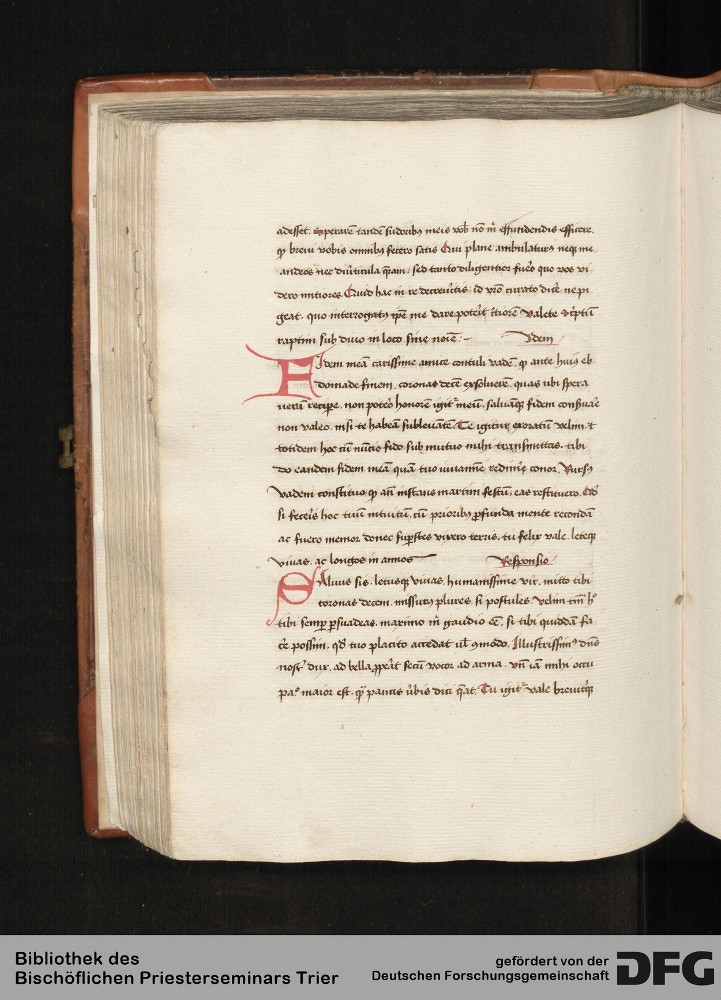 adesset. Sperarē tandē sudoribus meis vob nō in effundendis efficere
qp breui vobis omnibus fecero satis Qui plane ambulaturus neque me
andros nec diuticula qdam. sed tanto diligentior fuero quo vos vi
dero mitiores Quid hac in re decreueritis id vro curato dicere ne pi
geat. quo interrogatus ipse me dare potero Valete Scptū
raptim sub diuo in loco sine noīe:- Idem
Fidem meā carissime amice contuli vadē. qp ante huius eb
domade finem. coronas decē exsoluere. quas ubi spera
uerā recipere. non potero honorē igit meū. saluāque fidem conseruare
non valeo. nisi te habeā subleuatorē Te igitur exoratū velim. et
totidem hoc cū nūcio fido sub mutuo mihi transmittas. tibi
do eandem fidem meā quā tuo iuuamine redimere conor. Rursus
vadem constituo. qp an instans martini festū. eas restituero. Qd
si feceris hoc tuū intuitū. cū prioribus pfunda mente recondā
ac fuero memor donec supstes vixero terris. tu felix vale. letqe
viuas. ac longos in annos Responsio
SAluus sis. letusque viuas. humanissime vir. mitto tibi
coronas decem. missurus plures. si postules. Velim tm hoc
tibi semp psuadeas. maximo in gaudio eē. si tibi quiddā fa
cere possim. qd tuo placito accedat ul cōmodo. Illustrissimus dns
nost dux. ad bella properat secū vocor ad arma. vn iā mihi occu
pao maior est. qp paucis ubis dici qeat. Tu igit vale breuitque
Bibliothek des
Bischöflichen Priesterseminars Trier
gefördert von der
Deutschen Forschungsgemeinschaft
DFG